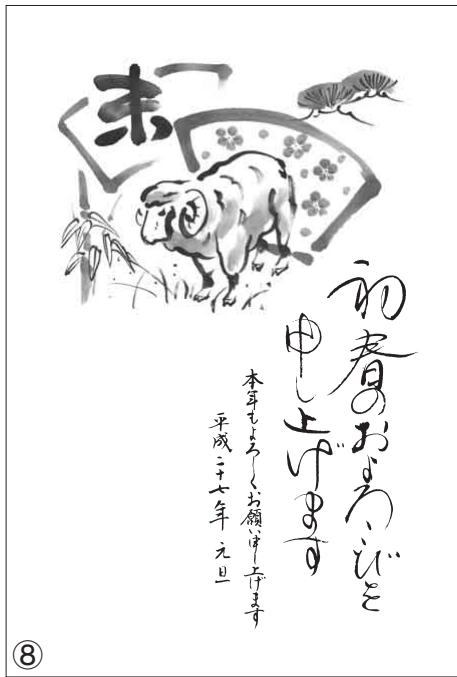 未
初春のおよろこびを
申し上げます
本年もよろしくお願い申し上げます
平成二十七年 元旦
⑧